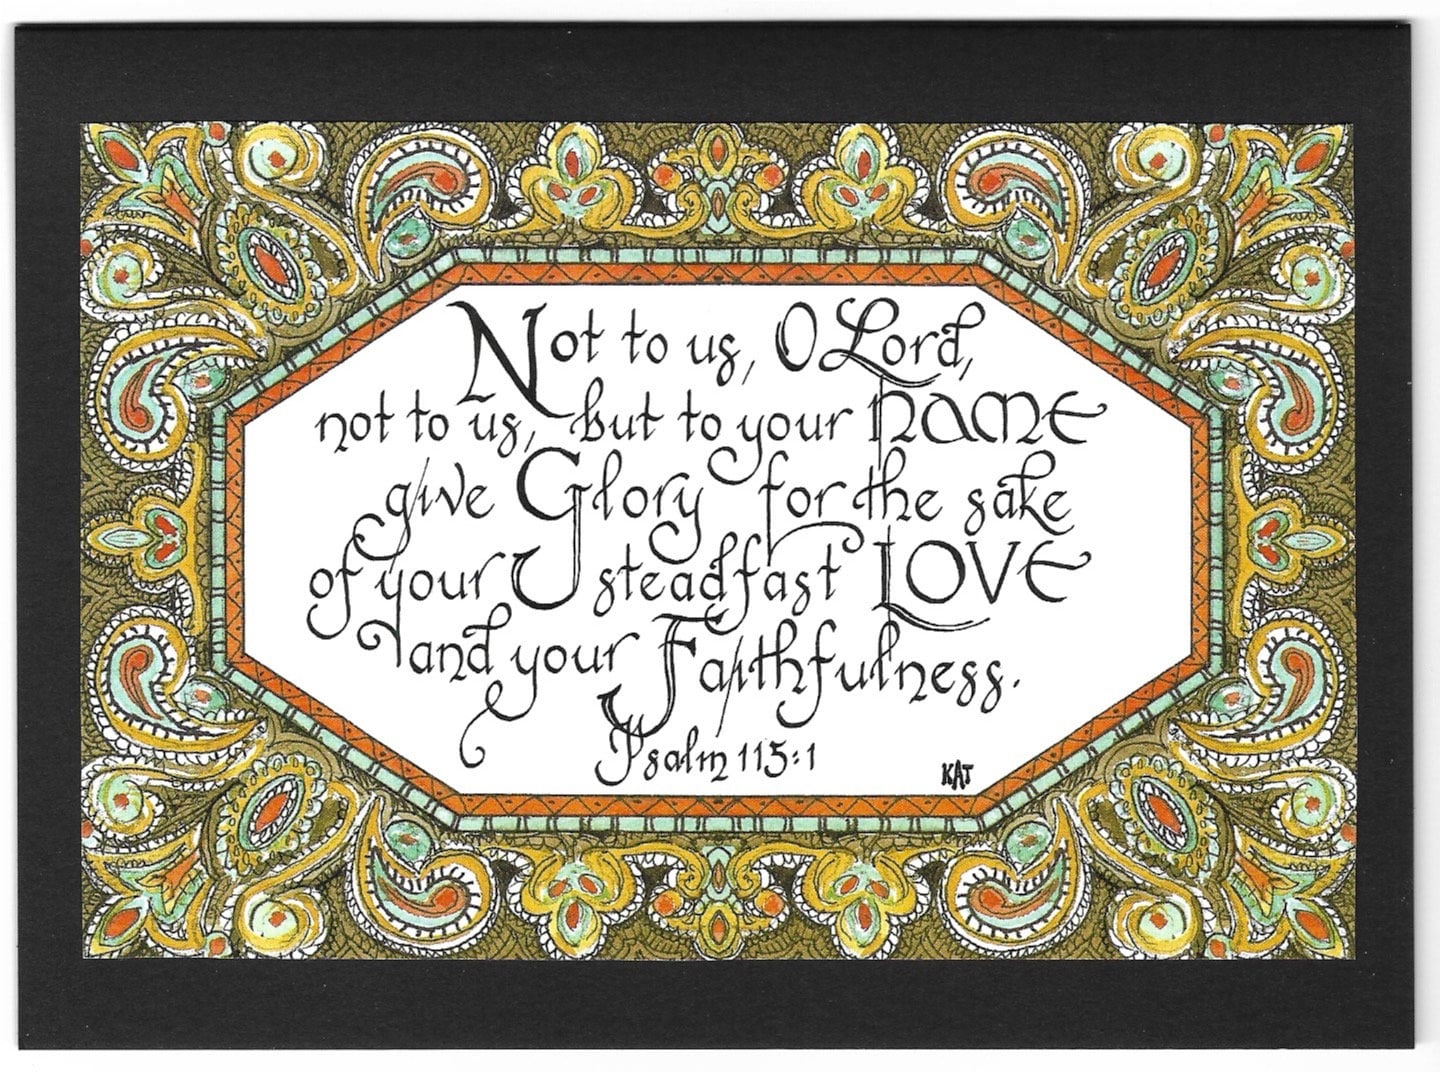 Not to us, O Lord,
not to us, but to your NAME
give Glory for the sake
of your steadfast LOVE
and your Faithfulness.
Psalm 115:1
KAT